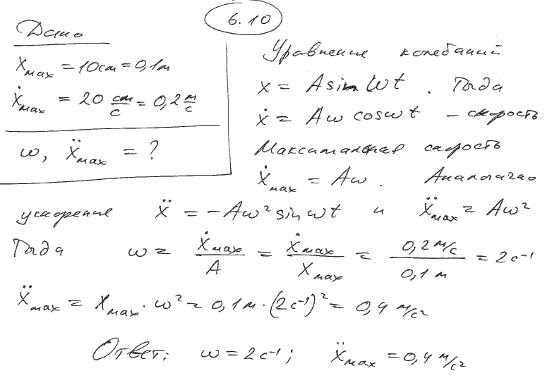 6.10
Дано
x_max = 10 см = 0,1 м
ẋ_max = 20 см/с = 0,2 м/с
ω, ẍ_max = ?
Уравнение колебаний
x = A sin ωt . Тогда
ẋ = Aω cos ωt – скорость
Максимальная скорость
ẋ_max = Aω. Аналогично
ускорение ẍ = -Aω² sin ωt и ẍ_max = Aω²
Тогда ω = ẋ_max/A = ẋ_max/x_max = 0,2 м/с / 0,1 м = 2 с⁻¹
ẍ_max = x_max · ω² = 0,1 м · (2 с⁻¹)² = 0,4 м/с²
Ответ: ω = 2 с⁻¹; ẍ_max = 0,4 м/с²